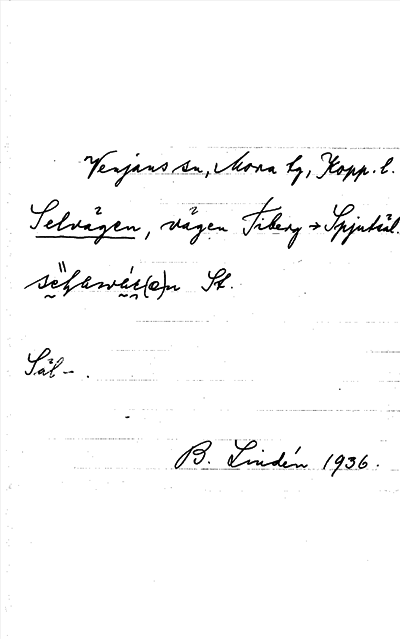 Venjans sn, Mora tg, Kopp. l.
Selvägen, vägen Fiberg → Spjutsäl.
St.
Säl- .
B. Lindén 1936.